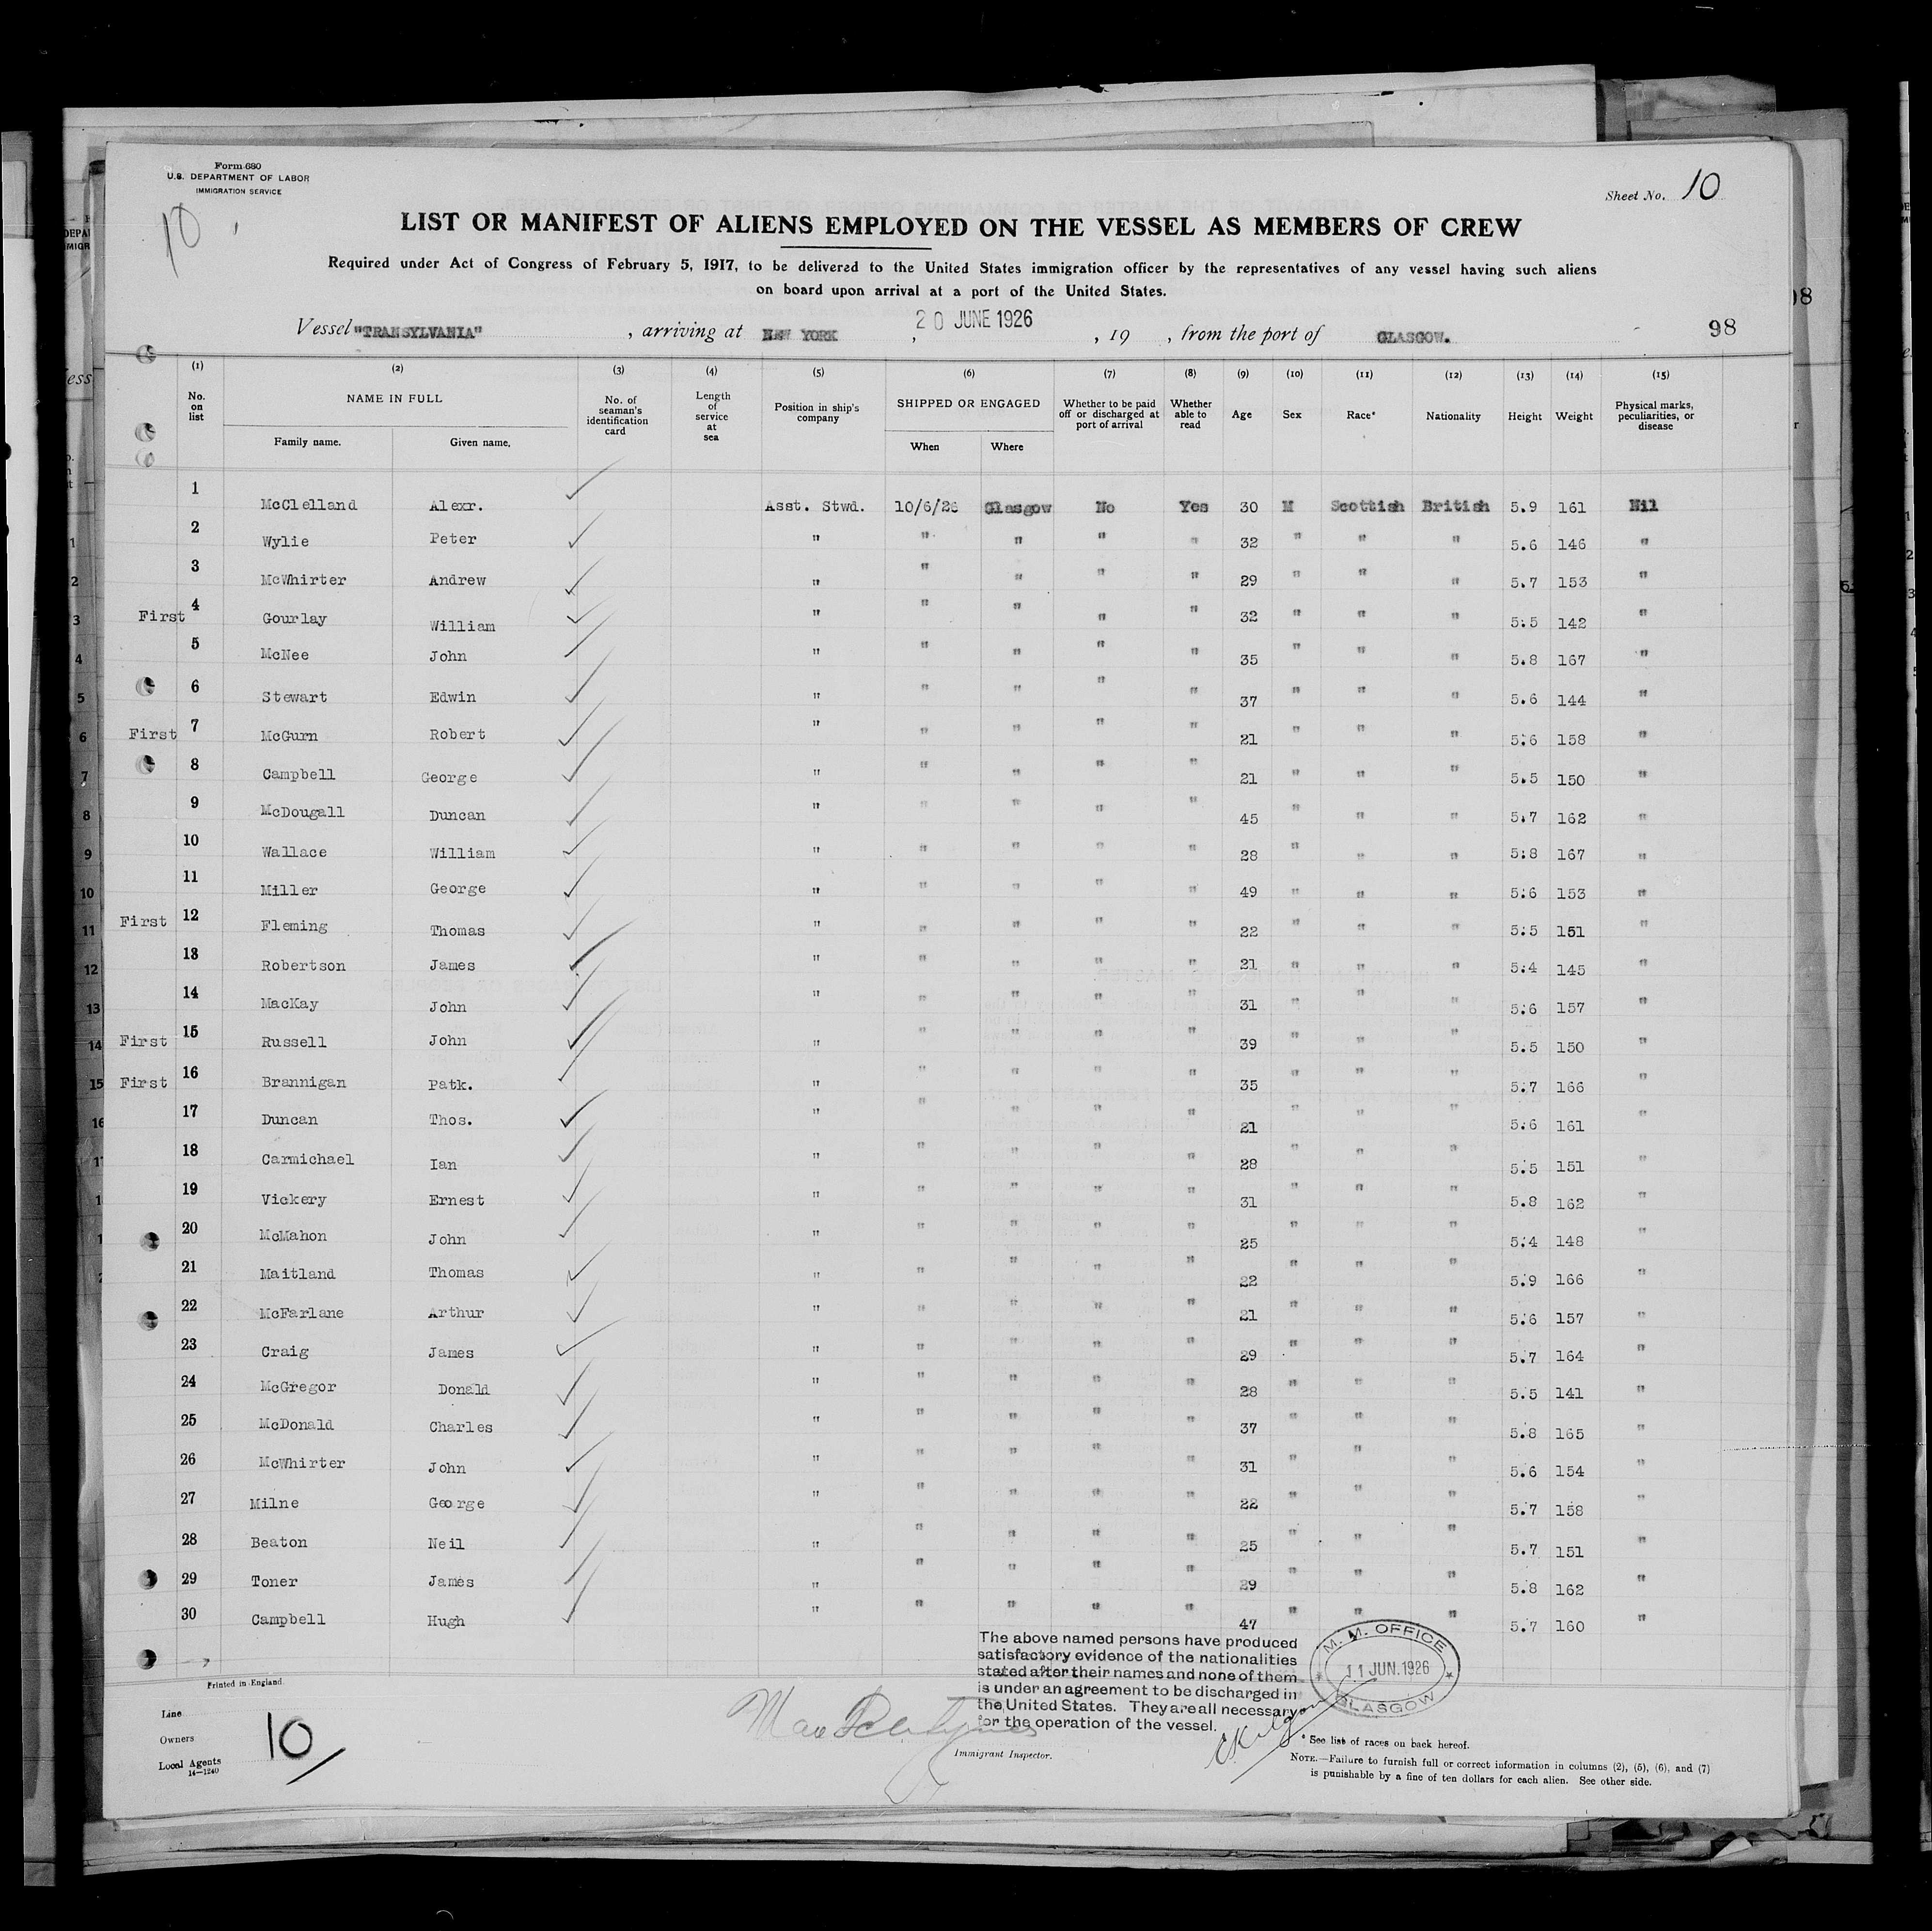 Form 680
U.S. DEPARTMENT OF LABOR
IMMIGRATION SERVICE
Sheet No. 10
10
LIST OR MANIFEST OF ALIENS EMPLOYED ON THE VESSEL AS MEMBERS OF CREW
Required under Act of Congress of February 5, 1917, to be delivered to the United States immigration officer by the representatives of any vessel having such aliens
on board upon arrival at a port of the United States.
Vessel "TRANSYLVANIA", arriving at NEW YORK, 20 JUNE 1926, 19 , from the port of GLASGOW. 98
(1) (2) (3) (4) (5) (6) (7) (8) (9) (10) (11) (12) (13) (14) (15)
No. on list NAME IN FULL Family name. Given name. No. of seaman's identification card Length of service at sea Position in ship's company SHIPPED OR ENGAGED When Where Whether to be paid off or discharged at port of arrival Whether able to read Age Sex Race* Nationality Height Weight Physical marks, peculiarities, or disease
1 McClelland Alexr. Asst. Stwd. 10/6/26 Glasgow No Yes 30 M Scottish British 5.9 161 Nil
2 Wylie Peter " " " " " 32 " " " 5.6 146 "
3 McWhirter Andrew " " " " " 29 " " " 5.7 153 "
First 4 Gourlay William " " " " " 32 " " " 5.5 142 "
5 McNee John " " " " " 35 " " " 5.8 167 "
6 Stewart Edwin " " " " " 37 " " " 5.6 144 "
First 7 McGurn Robert " " " " " 21 " " " 5.6 158 "
8 Campbell George " " " " " 21 " " " 5.5 150 "
9 McDougall Duncan " " " " " 45 " " " 5.7 162 "
10 Wallace William " " " " " 28 " " " 5.8 167 "
11 Miller George " " " " " 49 " " " 5.6 153 "
First 12 Fleming Thomas " " " " " 22 " " " 5.5 151 "
13 Robertson James " " " " " 21 " " " 5.4 145 "
14 MacKay John " " " " " 31 " " " 5.6 157 "
First 15 Russell John " " " " " 39 " " " 5.5 150 "
First 16 Brannigan Patk. " " " " " 35 " " " 5.7 166 "
17 Duncan Thos. " " " " " 21 " " " 5.6 161 "
18 Carmichael Ian " " " " " 28 " " " 5.5 151 "
19 Vickery Ernest " " " " " 31 " " " 5.8 162 "
20 McMahon John " " " " " 25 " " " 5.4 148 "
21 Maitland Thomas " " " " " 22 " " " 5.9 166 "
22 McFarlane Arthur " " " " " 21 " " " 5.6 157 "
23 Craig James " " " " " 29 " " " 5.7 164 "
24 McGregor Donald " " " " " 28 " " " 5.5 141 "
25 McDonald Charles " " " " " 37 " " " 5.8 165 "
26 McWhirter John " " " " " 31 " " " 5.6 154 "
27 Milne George " " " " " 22 " " " 5.7 158 "
28 Beaton Neil " " " " " 25 " " " 5.7 151 "
29 Toner James " " " " " 29 " " " 5.8 162 "
30 Campbell Hugh " " " " " 47 " " " 5.7 160 "
The above named persons have produced
satisfactory evidence of the nationalities
stated after their names and none of them
is under an agreement to be discharged in
the United States. They are all necessary
for the operation of the vessel.
M. M. OFFICE
11 JUN. 1926
GLASGOW
Printed in England.
Line
Owners
Local Agents
14—1240
10
Immigrant Inspector.
* See list of races on back hereof.
NOTE.—Failure to furnish full or correct information in columns (2), (5), (6), and (7)
is punishable by a fine of ten dollars for each alien. See other side.